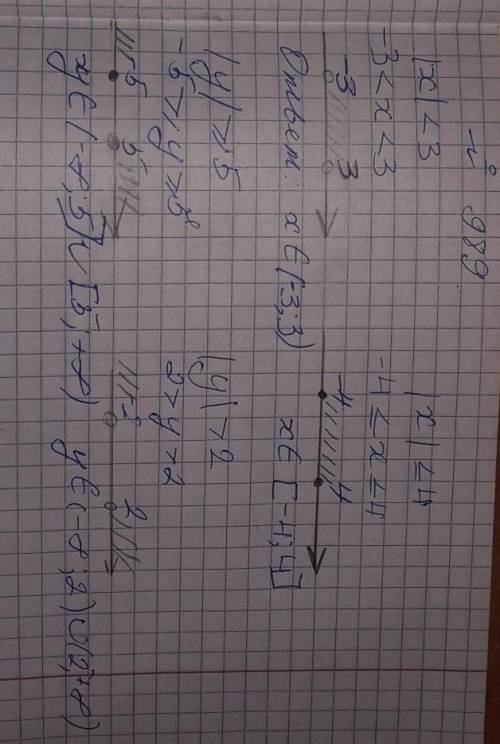 № 989
|x| < 3
-3 < x < 3
-3 3
Ответ: x ∈ (-3; 3)
|x| ≤ 4
-4 ≤ x ≤ 4
-4 4
x ∈ [-4; 4]
|y| ≥ 5
-5 ≥ y ≥ 5
-5 5
y ∈ (-∞; 5] ∪ [5; +∞)
|y| > 2
2 > y > 2
-2 2
y ∈ (-∞; 2) ∪ (2; +∞)